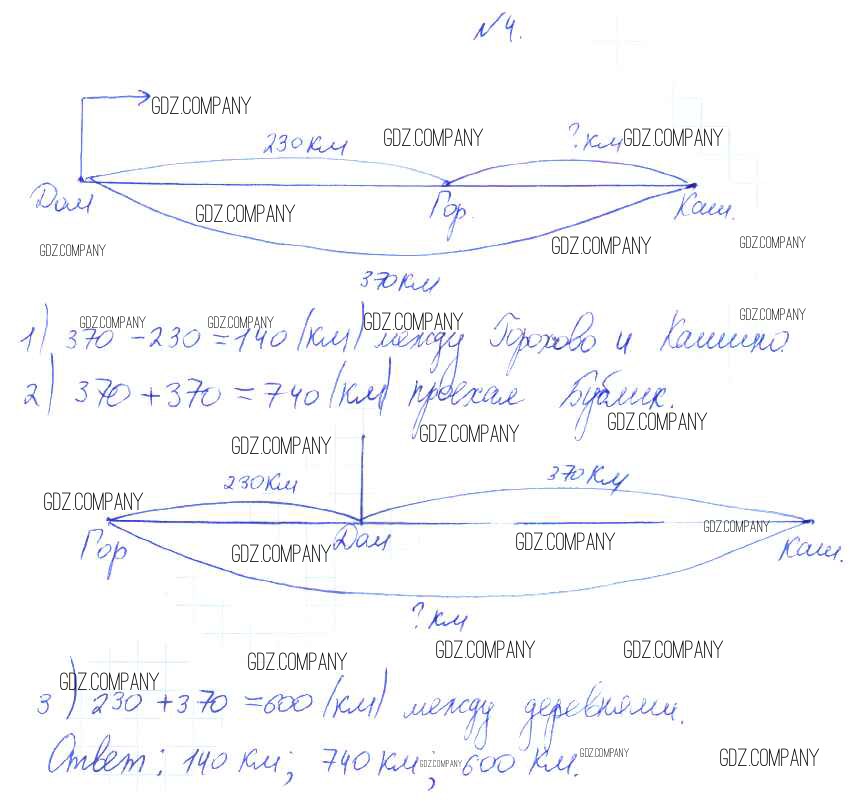 №4.
GDZ.COMPANY
230 км GDZ.COMPANY ? км GDZ.COMPANY
Дом GDZ.COMPANY Гор. Каш.
GDZ.COMPANY GDZ.COMPANY GDZ.COMPANY
370 км
GDZ.COMPANY GDZ.COMPANY GDZ.COMPANY GDZ.COMPANY
1) 370 - 230 = 140 (км) между Горохово и Кашино.
2) 370 + 370 = 740 (км) проехал Бублик.
GDZ.COMPANY GDZ.COMPANY GDZ.COMPANY
230 км 370 км
GDZ.COMPANY GDZ.COMPANY
Гор GDZ.COMPANY Дом GDZ.COMPANY Каш.
? км
GDZ.COMPANY GDZ.COMPANY GDZ.COMPANY
GDZ.COMPANY
3) 230 + 370 = 600 (км) между деревнями.
Ответ: 140 км; 740 км; GDZ.COMPANY 600 км. GDZ.COMPANY GDZ.COMPANY